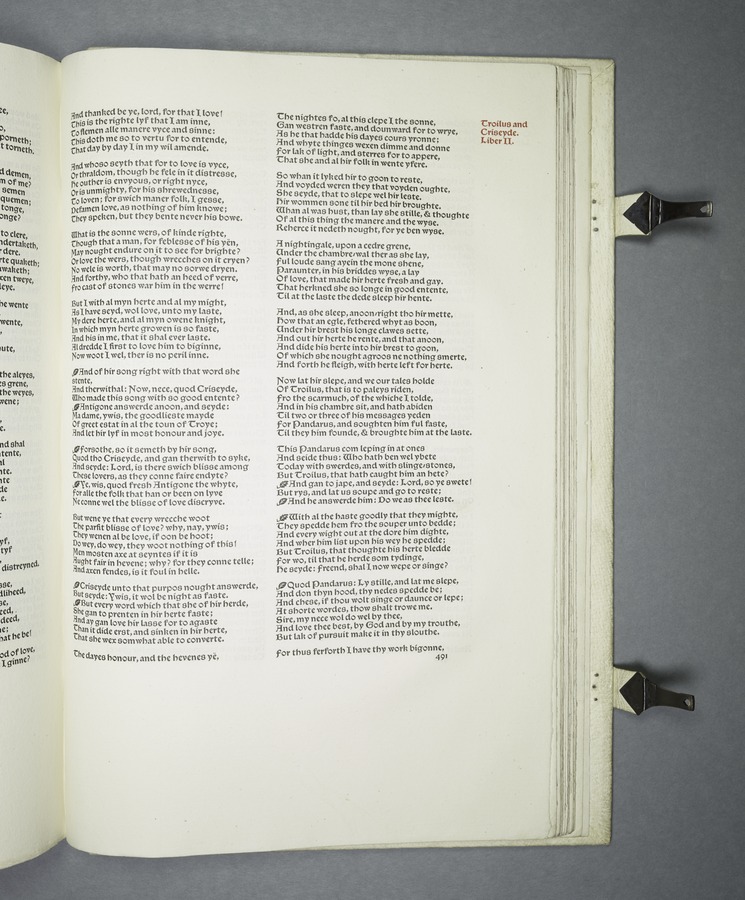 porneth;
t torneth.
d demen,
m of me?
semen
quemen;
tonge,
onge?
to clere,
ndertaketh,
r dere.
rte quaketh;
waketh;
tweye,
leye.
he wente
wente,
the aleyes,
es grene,
the weyes,
wene;
nd shal
tente,
distreyned.
dliheed,
deed,
hat he be!
od of love,
I ginne?
And thanked be ye, lord, for that I love!
This is the righte lyf that I am inne,
To flemen alle manere vyce and sinne:
This doth me so to vertu for to entende,
That day by day I in my wil amende.
And whoso seyth that for to love is vyce,
Or thraldom, though he fele in it distresse,
He outher is envyous, or right nyce,
Or is unmighty, for his shrewednesse,
To loven; for swich maner folk, I gesse,
Defamen love, as nothing of him knowe;
They speken, but they bente never his bowe.
What is the sonne wers, of kinde righte,
Though that a man, for feblesse of his yën,
May nought endure on it to see for brighte?
Or love the wers, though wrecches on it cryen?
No wele is worth, that may no sorwe dryen.
And forthy, who that hath an heed of verre,
Fro cast of stones war him in the werre!
But I with al myn herte and al my might,
As I have seyd, wol love, unto my laste,
My dere herte, and al myn owene knight,
In which myn herte growen is so faste,
And his in me, that it shal ever laste.
Al dredde I first to love him to biginne,
Now woot I wel, ther is no peril inne.
And of hir song right with that word she
stente,
And therwithal: Now, nece, quod Criseyde,
Who made this song with so good entente?
Antigone answerde anoon, and seyde:
Madame, ywis, the goodlieste mayde
Of greet estat in al the toun of Troye;
And let hir lyf in most honour and joye.
Forsothe, so it semeth by hir song,
Quod tho Criseyde, and gan therwith to syke,
And seyde: Lord, is there swich blisse among
These lovers, as they conne faire endyte?
Ye, wis, quod fresh Antigone the whyte,
For alle the folk that han or been on lyve
Ne conne wel the blisse of love discryve.
But wene ye that every wrecche woot
The parfit blisse of love? why, nay, ywis;
They wenen al be love, if oon be hoot;
Do wey, do wey, they woot nothing of this!
Men mosten axe at seyntes if it is
Aught fair in hevene; why? for they conne telle;
And axen fendes, is it foul in helle.
Criseyde unto that purpos nought answerde,
But seyde: Ywis, it wol be night as faste.
But every word which that she of hir herde,
She gan to prenten in hir herte faste;
And ay gan love hir lasse for to agaste
Than it dide erst, and sinken in hir herte,
That she wex somwhat able to converte.
The dayes honour, and the hevenes yë,
The nightes fo, al this clepe I the sonne,
Gan westren faste, and dounward for to wrye,
As he that hadde his dayes cours yronne;
And whyte thinges wexen dimme and donne
For lak of light, and sterres for to appere,
That she and al hir folk in wente yfere.
So whan it lyked hir to goon to reste,
And voyded weren they that voyden oughte,
She seyde, that to slepe wel hir leste.
Hir wommen sone til hir bed hir broughte.
Whan al was hust, than lay she stille, & thoughte
Of al this thing the manere and the wyse.
Reherce it nedeth nought, for ye ben wyse.
A nightingale, upon a cedre grene,
Under the chambre/wal ther as she lay,
Ful loude sang ayein the mone shene,
Paraunter, in his briddes wyse, a lay
Of love, that made hir herte fresh and gay.
That herkned she so longe in good entente,
Til at the laste the dede sleep hir hente.
And, as she sleep, anoon/right tho hir mette,
How that an egle, fethered whyt as boon,
Under hir brest his longe clawes sette,
And out hir herte he rente, and that anoon,
And dide his herte into hir brest to goon,
Of which she nought agroos ne nothing smerte,
And forth he fleigh, with herte left for herte.
Now lat hir slepe, and we our tales holde
Of Troilus, that is to paleys riden,
Fro the scarmuch, of the whiche I tolde,
And in his chambre sit, and hath abiden
Til two or three of his messages yeden
For Pandarus, and soughten him ful faste,
Til they him founde, & broughte him at the laste.
This Pandarus com leping in at ones
And seide thus: Who hath ben wel ybete
Today with swerdes, and with slinge/stones,
But Troilus, that hath caught him an hete?
And gan to jape, and seyde: Lord, so ye swete!
But rys, and lat us soupe and go to reste;
And he answerde him: Do we as thee leste.
With al the haste goodly that they mighte,
They spedde hem fro the souper unto bedde;
And every wight out at the dore him dighte,
And wher him list upon his wey he spedde;
But Troilus, that thoughte his herte bledde
For wo, til that he herde som tydinge,
He seyde: Freend, shal I now wepe or singe?
Quod Pandarus: Ly stille, and lat me slepe,
And don thyn hood, thy nedes spedde be;
And chese, if thou wolt singe or daunce or lepe;
At shorte wordes, thow shalt trowe me.
Sire, my nece wol do wel by thee,
And love thee best, by God and by my trouthe,
But lak of pursuit make it in thy slouthe.
For thus ferforth I have thy work bigonne,
491
Troilus and
Criseyde.
Liber II.